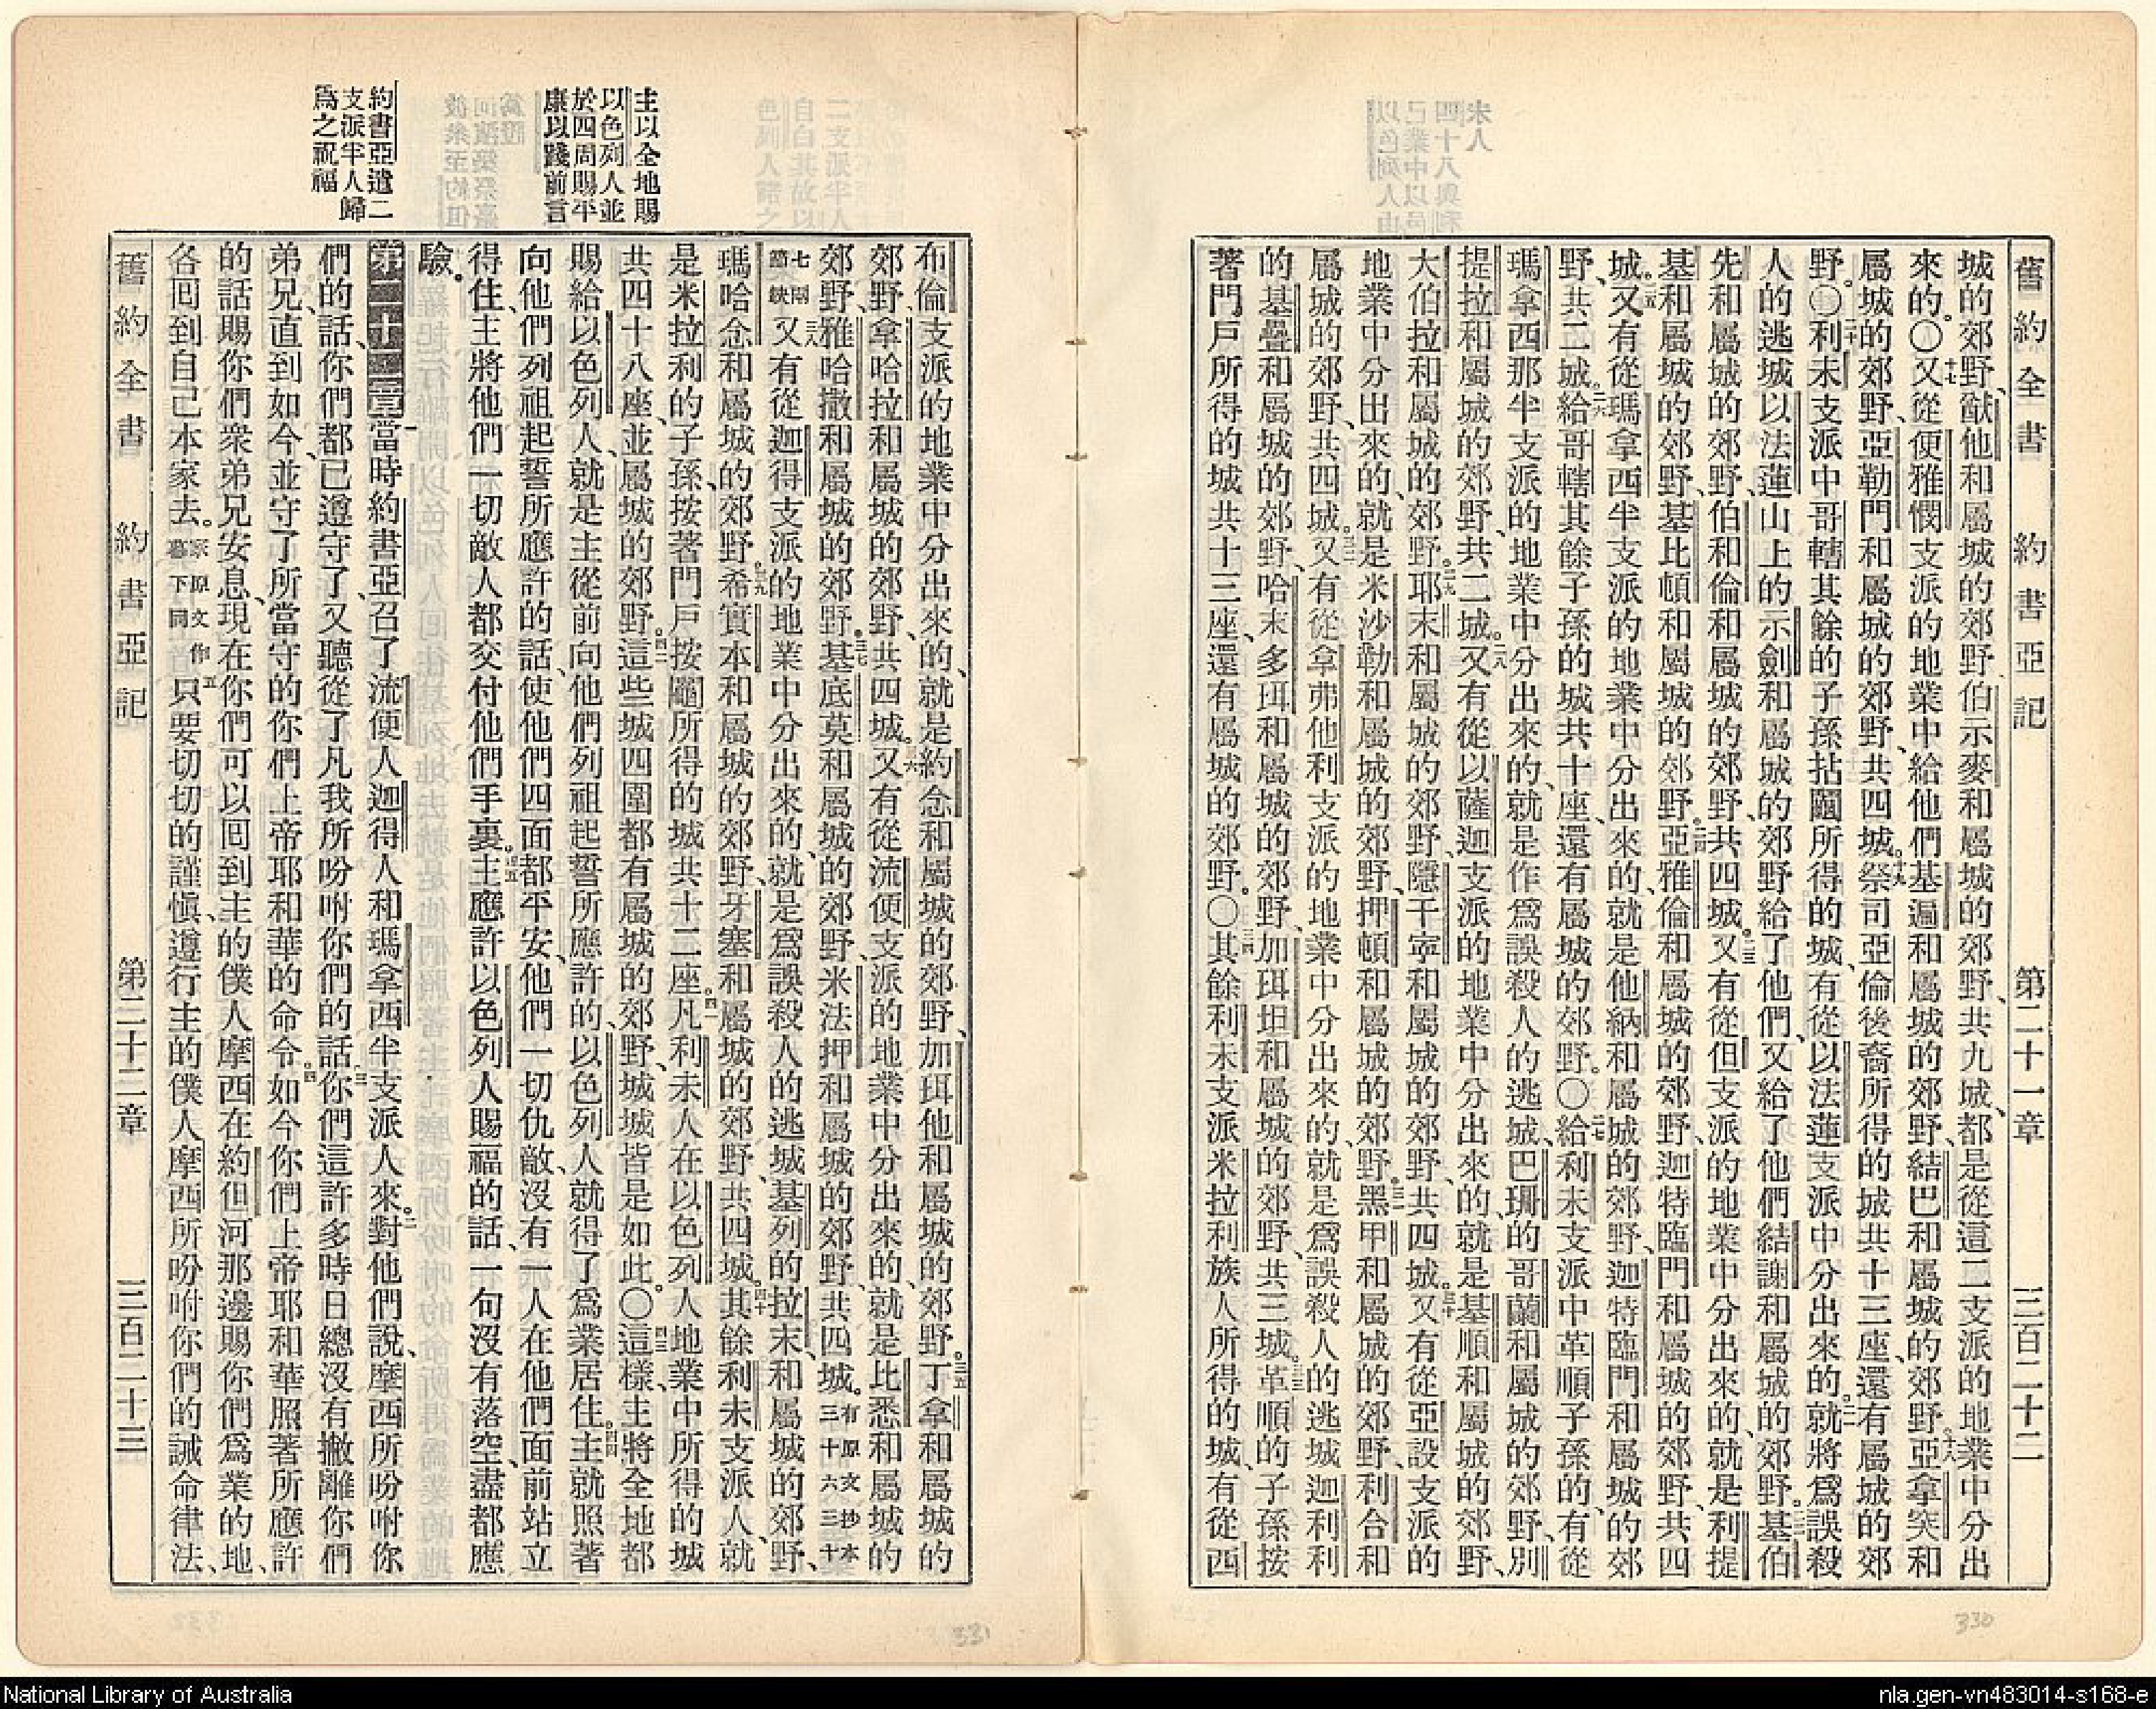 舊約全書　約書亞記　第二十一章　三百二十二
城的郊野、猷他和屬城的郊野、伯示麥和屬城的郊野、共九城、都是從這二支派的地業中分出
來的。〇十七又從便雅憫支派的地業中給他們基遍和屬城的郊野、結巴和屬城的郊野、十八亞拿突和
屬城的郊野、亞勒門和屬城的郊野、共四城。十九祭司亞倫後裔所得的城共十三座、還有屬城的郊
野。〇二十利未支派中哥轄其餘的子孫拈鬮所得的城、有從以法蓮支派中分出來的。二一就將爲誤殺
人的逃城以法蓮山上的示劍和屬城的郊野給了他們、又給了他們結謝和屬城的郊野。二二基伯
先和屬城的郊野、伯和倫和屬城的郊野、共四城。二三又有從但支派的地業中分出來的、就是利提
基和屬城的郊野、基比頓和屬城的郊野。二四亞雅倫和屬城的郊野、迦特臨門和屬城的郊野、共四
城。二五又有從瑪拿西半支派的地業中分出來的、就是他納和屬城的郊野、迦特臨門和屬城的郊
野、共二城。二六給哥轄其餘子孫的城共十座、還有屬城的郊野。〇二七給利未支派中革順子孫的、有從
瑪拿西那半支派的地業中分出來的、就是作爲誤殺人的逃城、巴珊的哥蘭和屬城的郊野、別
提拉和屬城的郊野、共二城。二八又有從以薩迦支派的地業中分出來的、就是基順和屬城的郊野、
大伯拉和屬城的郊野。二九耶末和屬城的郊野、隱干寧和屬城的郊野、共四城。三十又有從亞設支派的
地業中分出來的、就是米沙勒和屬城的郊野、押頓和屬城的郊野。三一黑甲和屬城的郊野、利合和
屬城的郊野、共四城。三二又有從拿弗他利支派的地業中分出來的、就是爲誤殺人的逃城迦利利
的基疊和屬城的郊野、哈末多珥和屬城的郊野、加珥坦和屬城的郊野、共三城。三三革順的子孫按
著門戶所得的城共十三座、還有屬城的郊野。〇三四其餘利未支派米拉利族人所得的城、有從西
主以全地賜
以色列人並
於四周賜平
康以踐前言
約書亞遣二
支派半人歸
爲之祝福
布倫支派的地業中分出來的、就是約念和屬城的郊野、加珥他和屬城的郊野。三五丁拿和屬城的
郊野、拿哈拉和屬城的郊野、共四城。三六又有從流便支派的地業中分出來的、就是比悉和屬城的
郊野、雅哈撒和屬城的郊野。三七基底莫和屬城的郊野、米法押和屬城的郊野、共四城。有原文抄本三十六三十
七兩節缺三八又有從迦得支派的地業中分出來的、就是爲誤殺人的逃城、基列的拉末和屬城的郊野、
瑪哈念和屬城的郊野。三九希實本和屬城的郊野、牙塞和屬城的郊野、共四城。四十其餘利未支派人、就
是米拉利的子孫、按著門戶按鬮所得的城共十二座。四一凡利未人在以色列人地業中所得的城
共四十八座、並屬城的郊野。四二這些城四圍都有屬城的郊野、城城皆是如此。〇四三這樣、主將全地都
賜給以色列人、就是主從前向他們列祖起誓所應許的、以色列人就得了爲業居住。四四主就照著
向他們列祖起誓所應許的話、使他們四面都平安、他們一切仇敵、沒有一人在他們面前站立
得住、主將他們一切敵人都交付他們手裏。四五主應許以色列人賜福的話、一句沒有落空、盡都應
驗。
第二十二章當時約書亞召了流便人迦得人和瑪拿西半支派人來。二對他們說、摩西所吩咐你
們的話、你們都已遵守了、又聽從了凡我所吩咐你們的話。三你們這許多時日總沒有撇離你們
弟兄、直到如今、並守了所當守的你們上帝耶和華的命令。四如今你們上帝耶和華照著所應許
的話賜你們衆弟兄安息、現在你們可以囘到主的僕人摩西在約但河那邊賜你們爲業的地、
各囘到自己本家去。家原文作幕下同五只要切切的謹愼、遵行主的僕人摩西所吩咐你們的誡命律法、
舊約全書　約書亞記　第二十二章　三百二十三
330
331
National Library of Australia
nla.gen-vn483014-s168-e